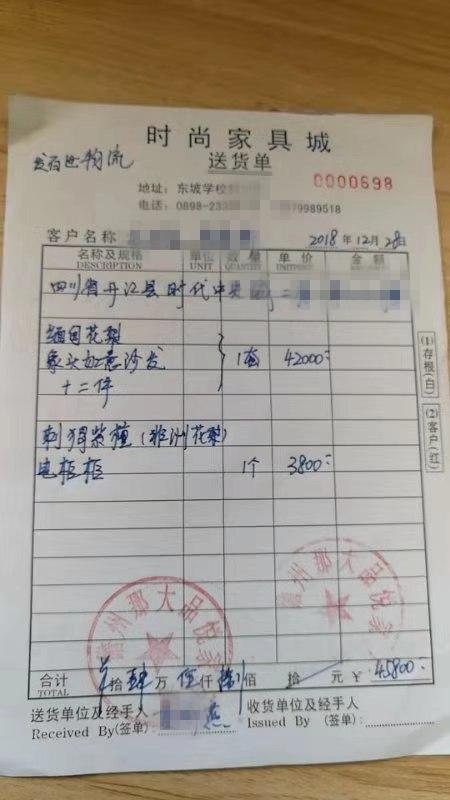 时尚家具城
送货单
发百世物流
地址：东坡学校
0000698
电话：0898-233 79989518
客户名称 2018年12月28日
名称及规格 单位 数量 单价 金额
DESCRIPTION UNIT QUANTITY UNITPRICE
四川省丹江县时代中
缅甸花梨
象头如意沙发 1套 42000
十二件
刺猬紫檀（非洲花梨）
电柜柜 1个 3800
(1)存根(白)
(2)客户(红)
儋州那大品悦家
儋州那大品悦家
合计 拾肆万伍仟捌佰 拾 元 ¥ 45800
TOTAL
送货单位及经手人 收货单位及经手人
Received By (签单): 燕 Issued By (签单):